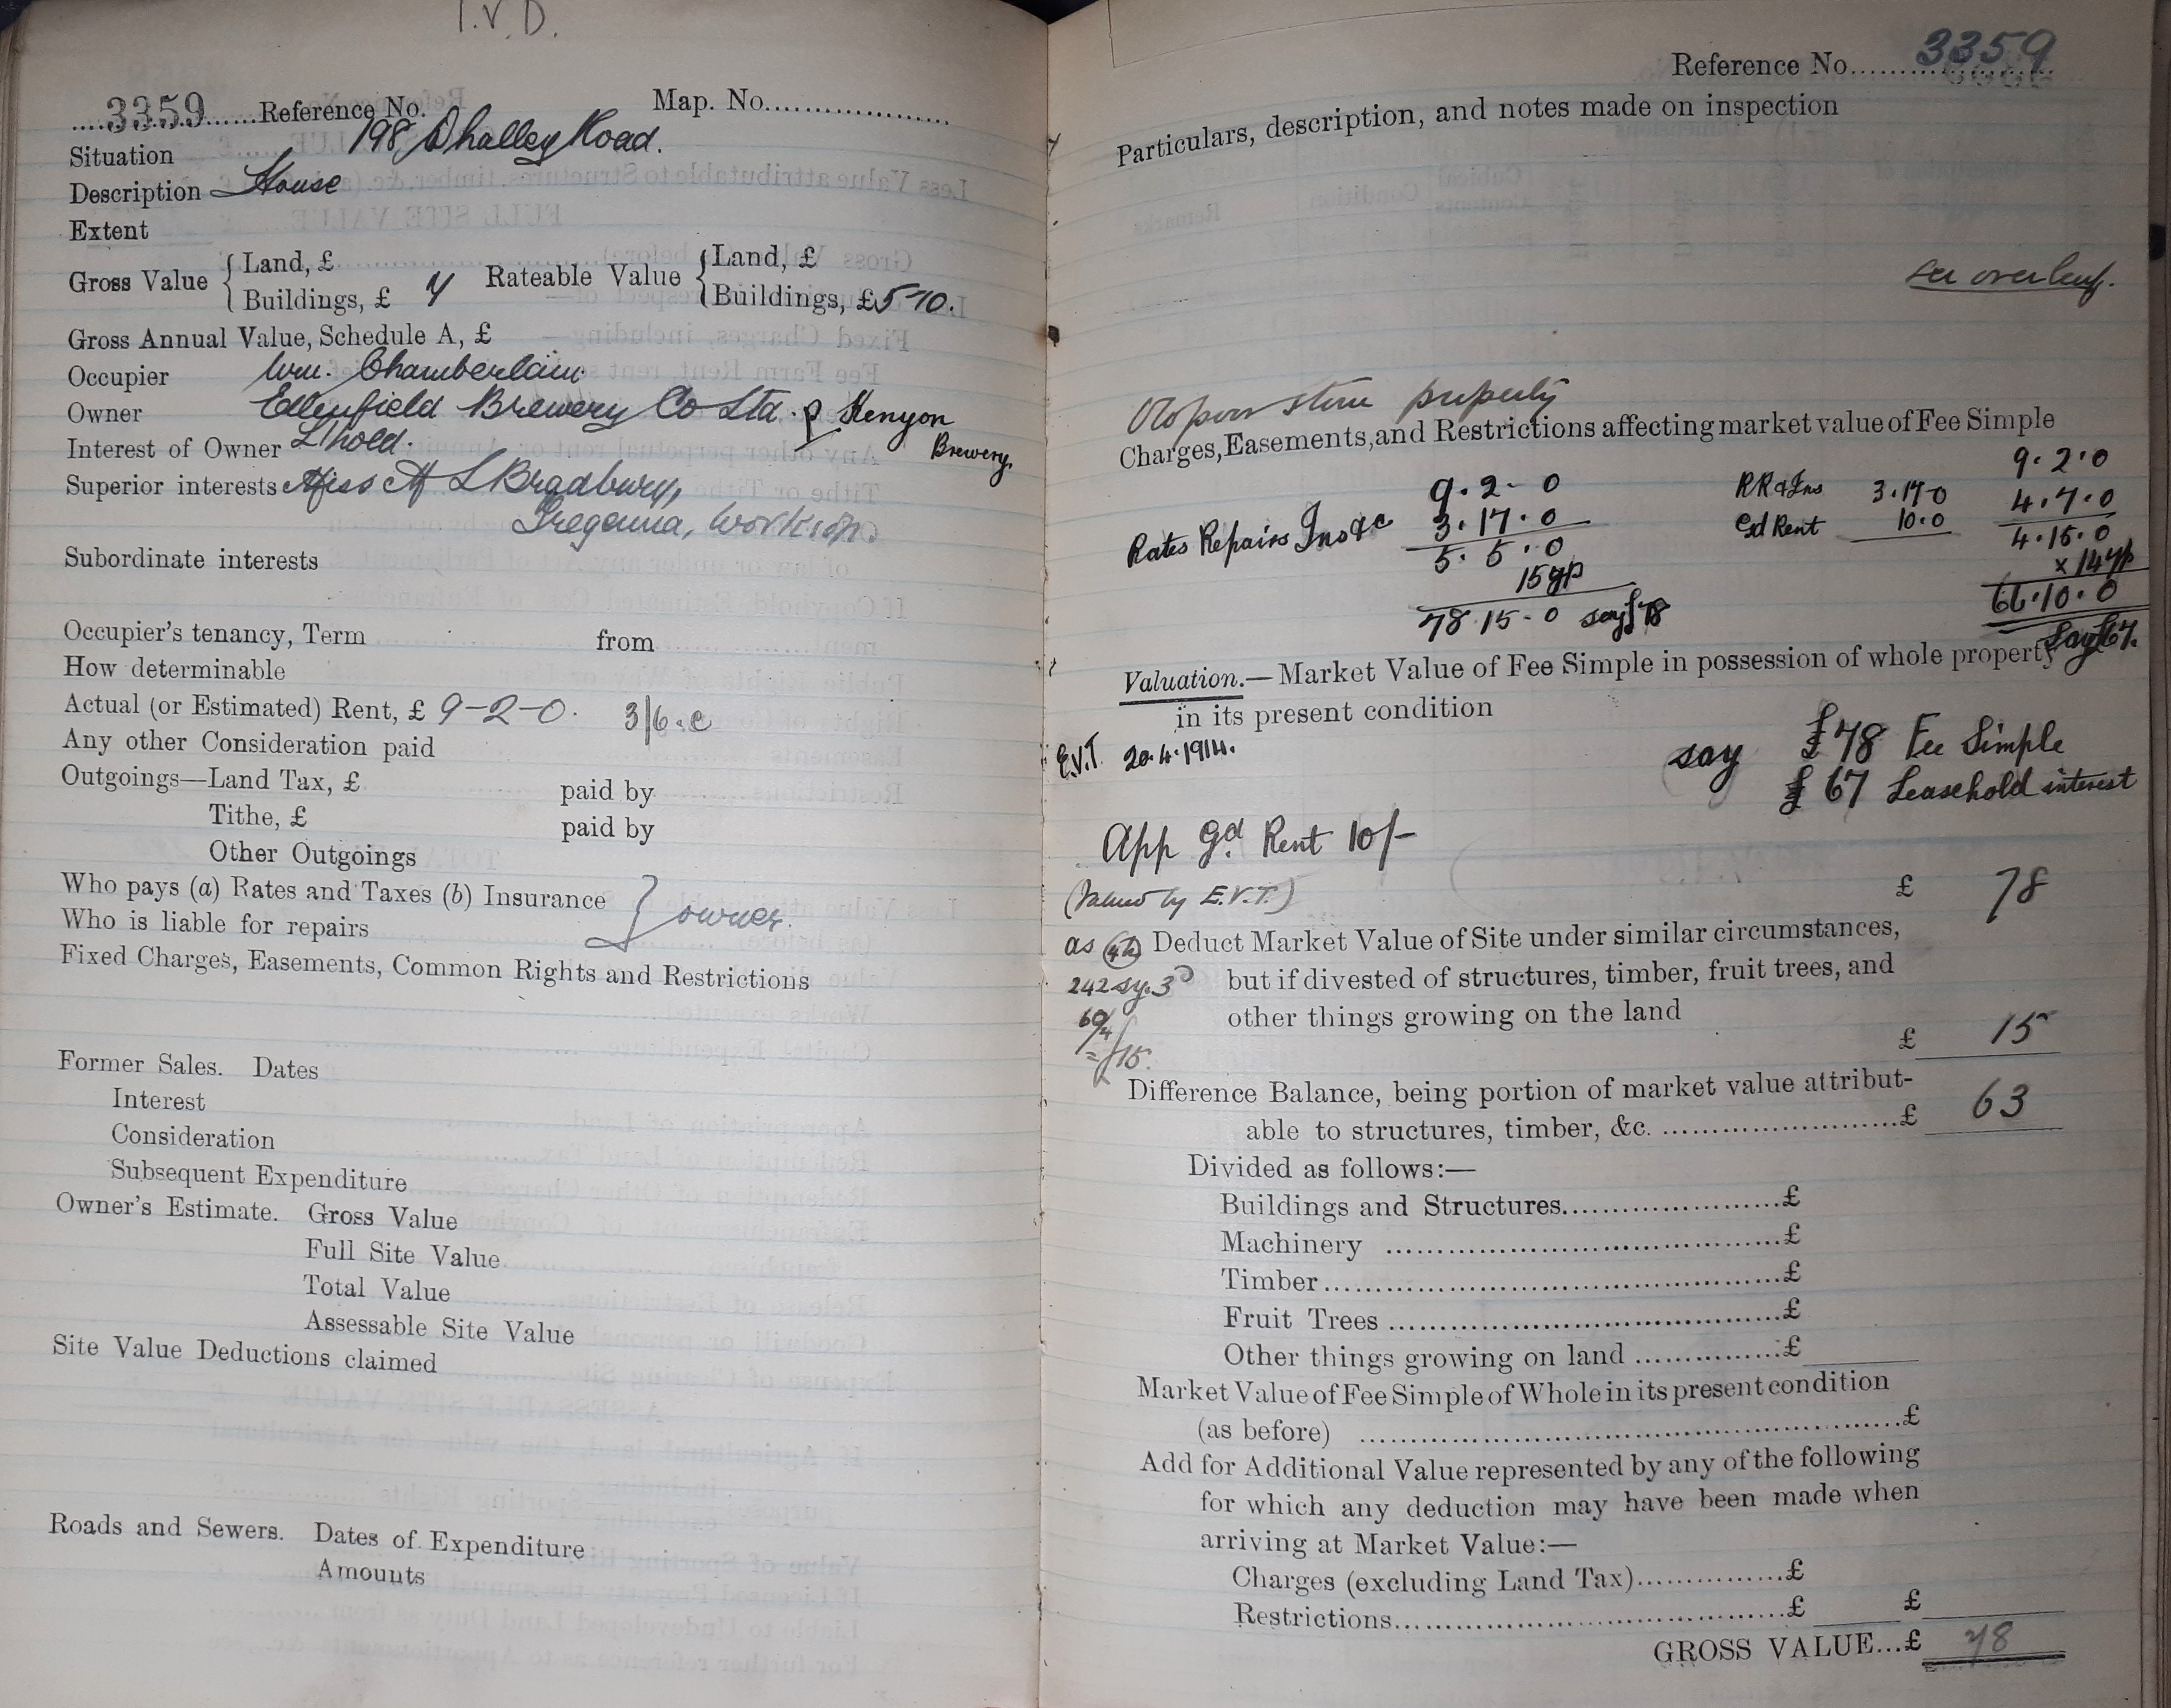 I.V.D.
3359 Reference No. Map. No.
Situation 198 Whalley Road.
Description House
Extent
Gross Value { Land, £ Rateable Value { Land, £
Buildings, £ 7 Buildings, £ 5-10.
Gross Annual Value, Schedule A, £
Occupier Wm. Chamberlain
Owner Ellenfield Brewery Co Ltd. Kenyon
Brewery.
Interest of Owner L'hold.
Superior interests Miss A L Bradbury,
Worksop.
Subordinate interests
Occupier's tenancy, Term from
How determinable
Actual (or Estimated) Rent, £ 9-2-0. 3/6.c
Any other Consideration paid
Outgoings—Land Tax, £ paid by
Tithe, £ paid by
Other Outgoings
Who pays (a) Rates and Taxes (b) Insurance } owner.
Who is liable for repairs
Fixed Charges, Easements, Common Rights and Restrictions
Former Sales. Dates
Interest
Consideration
Subsequent Expenditure
Owner's Estimate. Gross Value
Full Site Value
Total Value
Assessable Site Value
Site Value Deductions claimed
Roads and Sewers. Dates of Expenditure
Amounts
Reference No. 3359
Particulars, description, and notes made on inspection
see overleaf.
Old poor stone property
Charges, Easements, and Restrictions affecting market value of Fee Simple
9.2.0 9.2.0
Rates Repairs Ins &c 3.17.0 RR & Ins 3.17.0 4.7.0
5.5.0 Gd Rent 10.0 4.15.0
15 yp x 14 yp
78.15.0 say £78 66.10.0
Say £67.
Valuation.— Market Value of Fee Simple in possession of whole property
in its present condition
E.V.T. 20.4.1914. say £78 Fee Simple
£67 Leasehold interest
App gd. Rent 10/-
(Valued by E.V.T.) £ 78
as Deduct Market Value of Site under similar circumstances,
242 sy. 3d but if divested of structures, timber, fruit trees, and
60/4 other things growing on the land
= £15. £ 15
Difference Balance, being portion of market value attribut-
able to structures, timber, &c. £ 63
Divided as follows:—
Buildings and Structures £
Machinery £
Timber £
Fruit Trees £
Other things growing on land £
Market Value of Fee Simple of Whole in its present condition
(as before) £
Add for Additional Value represented by any of the following
for which any deduction may have been made when
arriving at Market Value:—
Charges (excluding Land Tax) £
Restrictions £ £
GROSS VALUE...£ 78